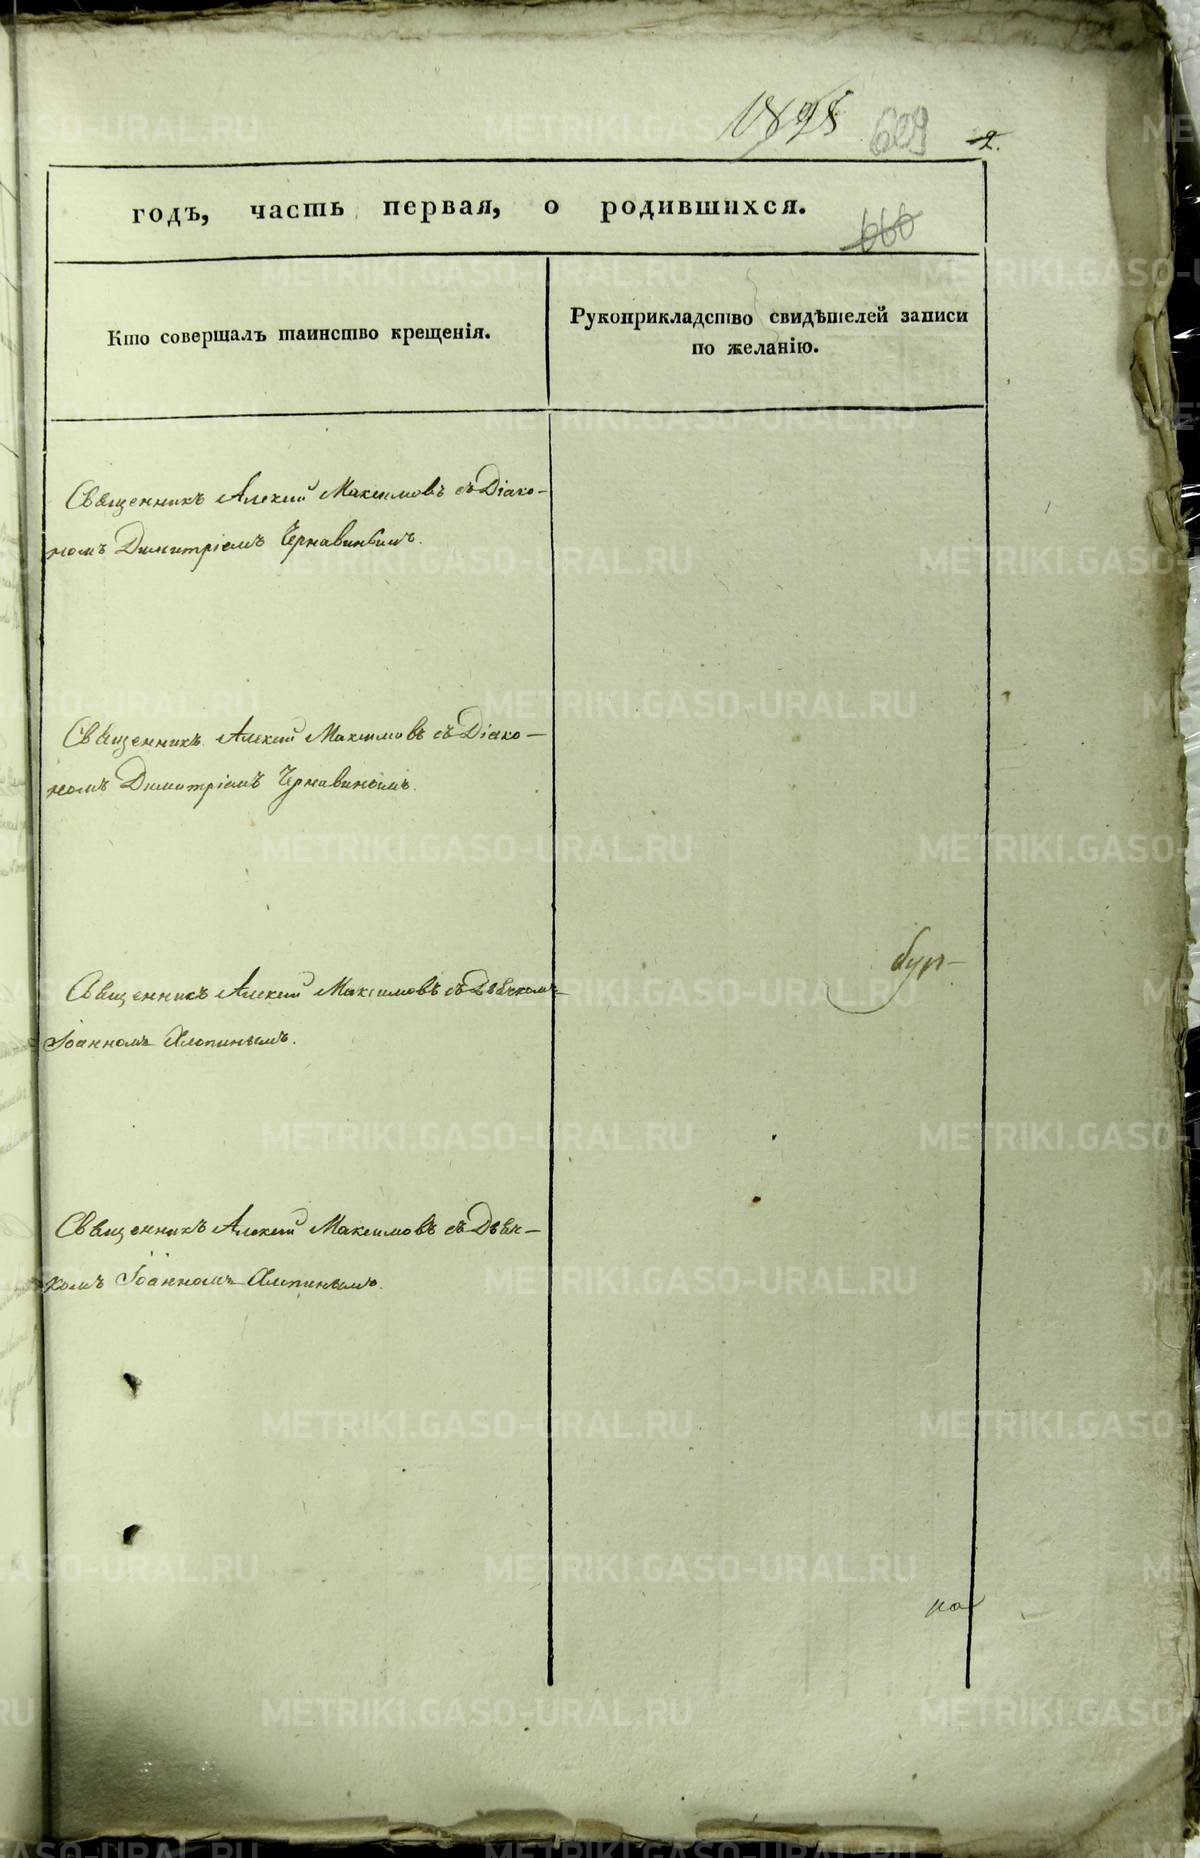 609 2.
годъ, часть первая, о родившихся.
666
Кто совершалъ таинство крещенія.
Рукоприкладство свидѣтелей записи
по желанію.
Священникъ Алексій Максимовъ съ Діако-
номъ Димитріемъ Чернавинымъ.
Священникъ Алексій Максимовъ съ Діако-
номъ Димитріемъ Чернавинымъ.
бур-
Священникъ Алексій Максимовъ съ Дьячкомъ
Іоанномъ Хлопинымъ.
Священникъ Алексій Максимовъ съ Дьяч-
комъ Іоанномъ Хлопинымъ.
на
METRIKI.GASO-URAL.RU